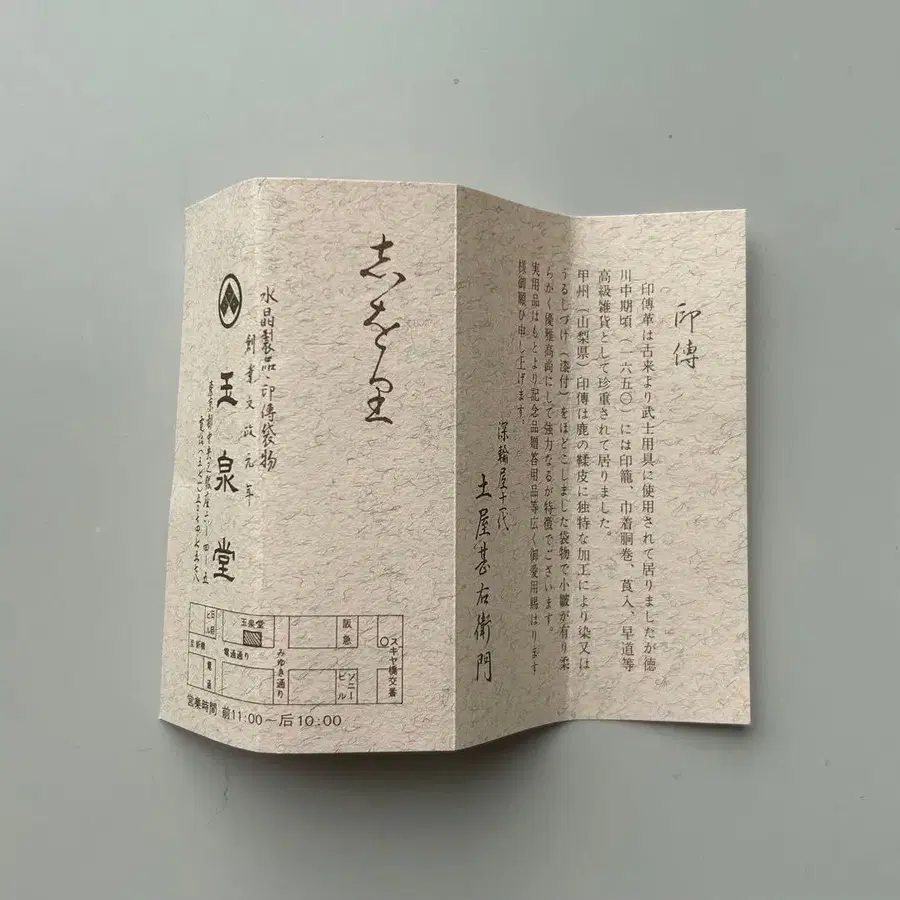 印傳
印傳革は古来より武士用具に使用されて居りましたが徳
川中期頃（一六五〇）には印籠、巾着胴巻、莨入、早道等
高級雑貨として珍重されて居りました。
甲州（山梨県）印傳は鹿の鞣皮に独特な加工により染又は
うるしづけ（漆付）をほどこしました袋物で小皺が有り柔
らかく優雅高尚にして強力なるが特徴でございます。
実用品はもとより記念品贈答用品等広く御愛用賜はります
様御願ひ申し上げます。
深輪屋十一代
土屋甚右衛門
志を里
水晶製品・印傳袋物
創業文政元年
玉泉堂
東京都中央区銀座六ノ四ノ五
玉泉堂
阪急
スキヤ橋交番
電通通り
みゆき通り
ソニービル
日航ビル
至新橋
電通
営業時間 前11:00〜后10:00